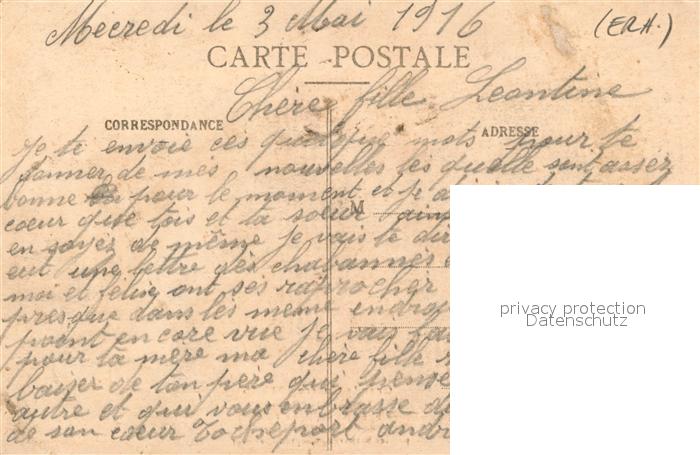 Mecredi le 3 Mai 1916 (ERH.)
CARTE POSTALE
Chère fille Leontine
CORRESPONDANCE
ADRESSE
Je te envoie ces quelque mots pour te
donner de mes nouvelles les quelle sont assez
bonne pour le moment et je
coeur que tois et ta soeur
M
en soyez de même je vais te dir
eut une lettre des chabannes
moi et felix ont ses raprocher
presque dans les meme endroi
point encore vue je vais
pour ta mère ma chère fille
baiser de ton père qui pense
autre et qui vous enbrasse de
de son coeur Rocheport andr
privacy protection
Datenschutz